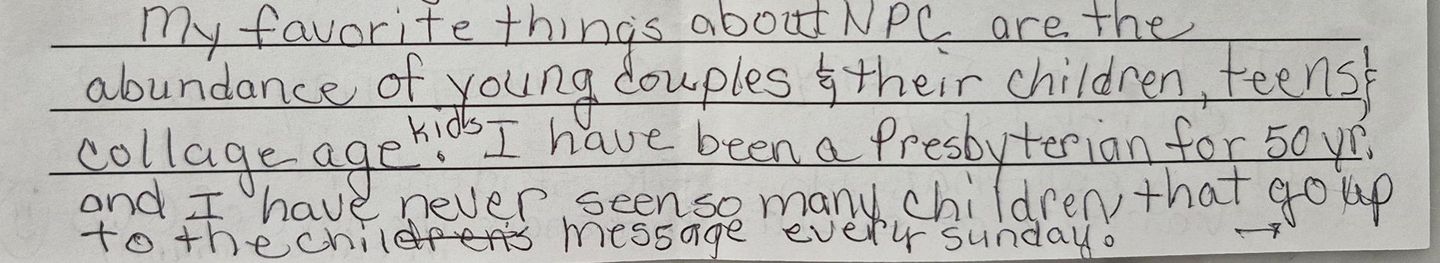 My favorite things about NPC are the
abundance of young couples & their children, teens &
collage age kids. I have been a Presbyterian for 50 yr.
and I have never seen so many children that go up
to the childrens message every sunday. →